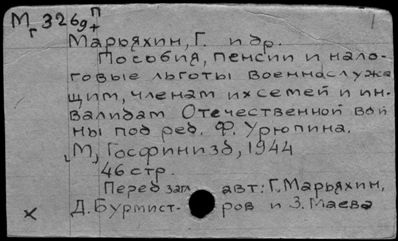 М 326g П
г +
Марьяхин, Г. и др.
Пособия, пенсии и нало-
говые льготы военнослужа
щим, членам их семей и ин-
валидам Отечественной вой
ны под ред. Ф. Урюпина.
М, Госфиниздат, 1944
46 стр.
Перед загл. авт: Г. Марьяхин,
Д. Бурмист- ров и З. Маева
х